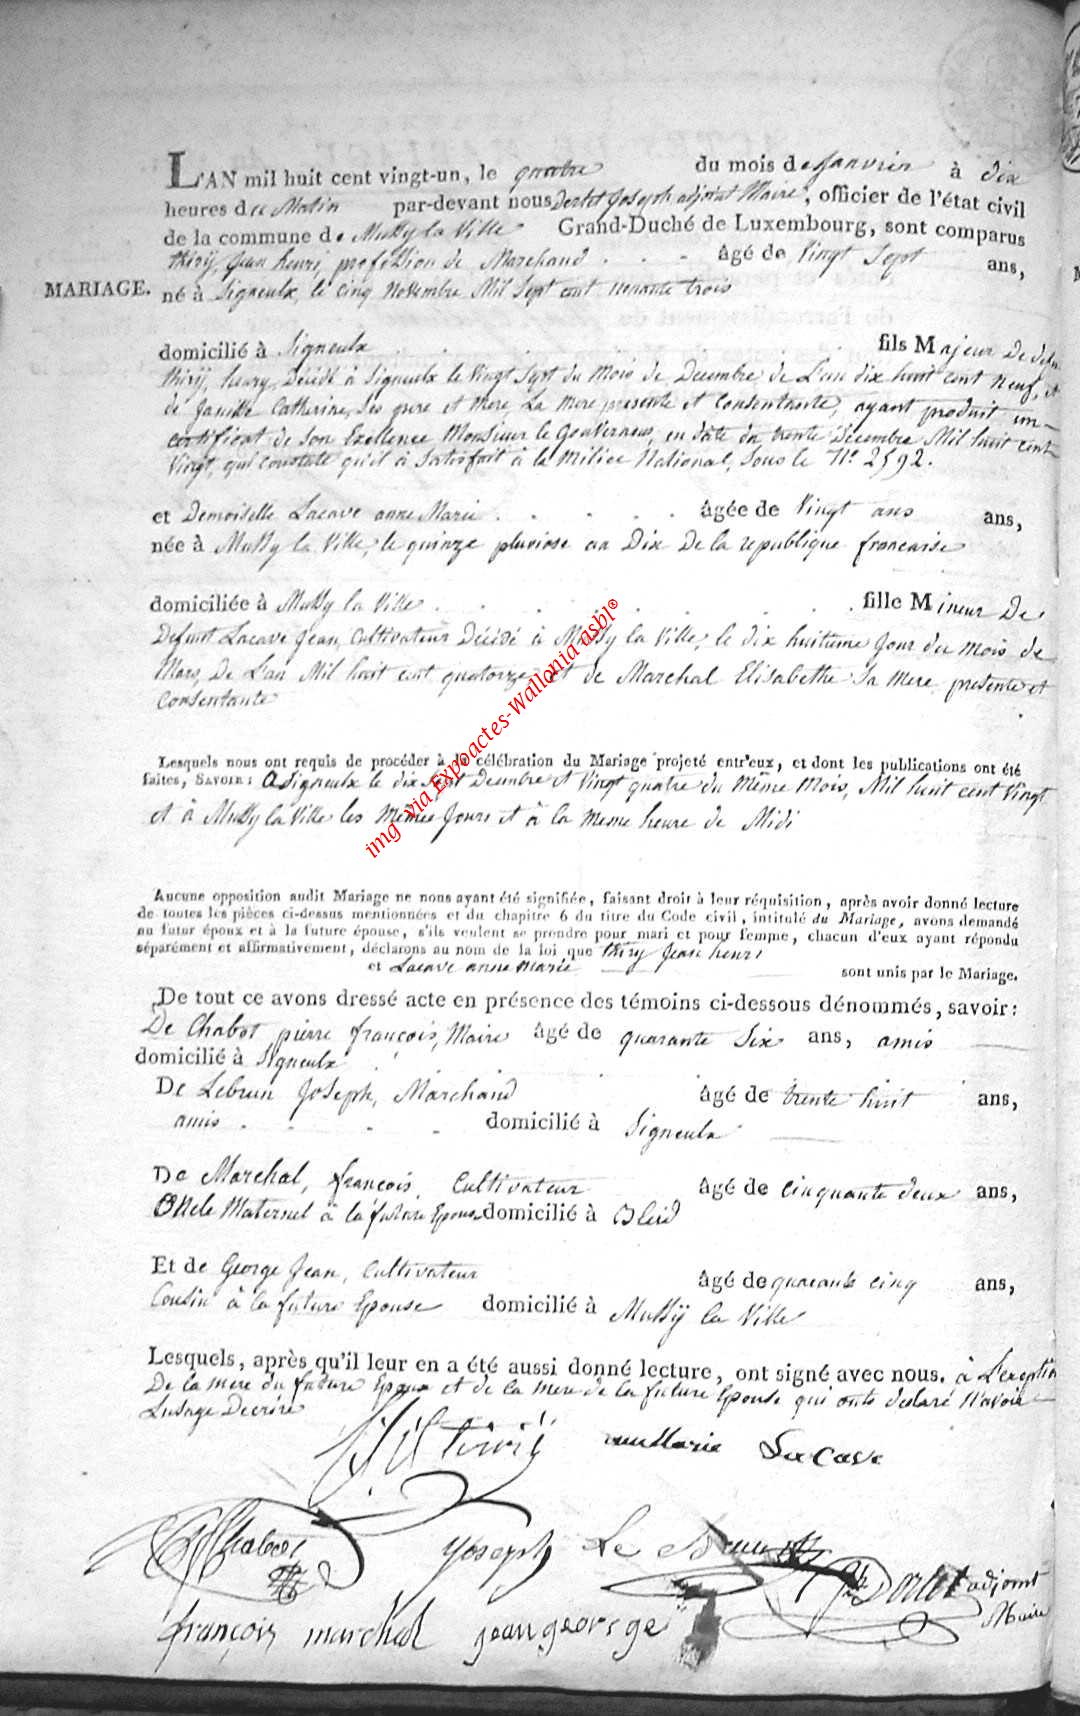 L'AN mil huit cent vingt-un, le quatre du mois de Janvier à dix
heures du Matin par-devant nous Dorlet Joseph adjoint Maire, officier de l'état civil
de la commune de Mussy la Ville Grand-Duché de Luxembourg, sont comparus
thirÿ, Jean henri, profession de Marchand . . . âgé de Vingt Sept ans,
MARIAGE. né à Signeulx, le cinq Novembre Mil Sept cent nonante trois
domicilié à Signeulx . . . . fils Majeur De defunt
thirÿ, henry, Décédé à Signeulx le Vingt Sept du Mois de Decembre de L'an dix huit cent neuf, et
de Catherine, Ses pere et Mere, La Mere presente et Consentante, ayant produit un
certificat de Son Exellence Monsieur le Gouverneur, en date du trente Decembre Mil huit cent
Vingt, qui constate qu'il à Satisfait à la Milice National, Sous le N.º 2592.
et Demoiselle Lacave anne Marie . . . . . âgée de Vingt ans ans,
née à Mussy la Ville, le quinze pluviose an Dix De la republique francaise
domiciliée à Mussy la Ville . . . . . . . fille Mineur De
Defunt Lacave Jean, Cultivateur Décédé à Mussy la Ville, le dix huitieme Jour du Mois de
Mars, De L'an Mil huit cent quatorze, et de Marchal Elisabethe Sa Mere, presente et
Consentante
Lesquels nous ont requis de procéder à la célébration du Mariage projeté entr'eux, et dont les publications ont été
faites, SAVOIR : A Signeulx le dix Sept Decembre et Vingt quatre du Même Mois, Mil huit cent Vingt
et à Mussy la Ville les Mêmes Jours et à la meme heure de Midi
Aucune opposition audit Mariage ne nous ayant été signifiée, faisant droit à leur réquisition, après avoir donné lecture
de toutes les pièces ci-dessus mentionnées et du chapitre 6 du titre du Code civil, intitulé du Mariage, avons demandé
au futur époux et à la future épouse, s'ils veulent se prendre pour mari et pour femme, chacun d'eux ayant répondu
séparément et affirmativement, déclarons au nom de la loi que thiry Jean henri
et Lacave anne Marie sont unis par le Mariage.
De tout ce avons dressé acte en présence des témoins ci-dessous dénommés, savoir :
De Chabot pierre françois, Maire âgé de quarante Six ans, amis
domicilié à Signeulx
De Lebrun Joseph, Marchand âgé de trente huit ans,
amis . . . . domicilié à Signeulx
De Marchal, françois, Cultivateur âgé de cinquante deux ans,
Oncle Maternel à la future Epouse domicilié à Bleid
Et de George Jean, Cultivateur âgé de quarante cinq ans,
Cousin à la future Epouse domicilié à Mussÿ la Ville
Lesquels, après qu'il leur en a été aussi donné lecture, ont signé avec nous. à L'exeption
De la mere du future Epoux et de la mere de la future Epouse qui onts déclaré N'avoir
Lusage Decrire
thirÿ anne Marie Lacave
Chabot Joseph Le Brun Dorlet adjoint
Maire
françois marchal jean georsge
img via Expoactes-Wallonia asbl®